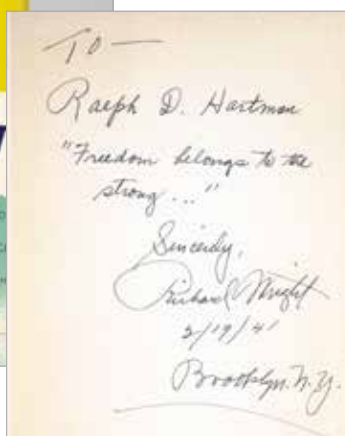 TO —
Ralph D. Hartman
"Freedom belongs to the
strong..."
Sincerely,
Richard Wright
2/19/41
Brooklyn. N.Y.